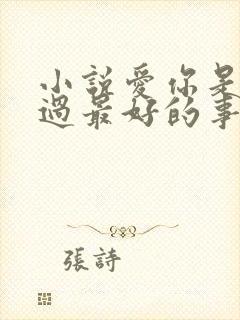 小說愛你是
過最好的事
張詩